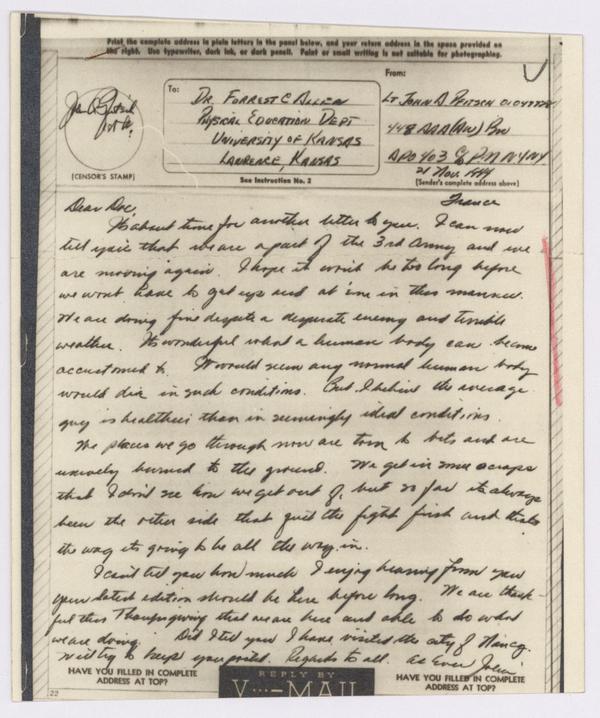 Print the complete address in plain letters in the panel below, and your return address in the space provided on
the right. Use typewriter, dark ink, or dark pencil. Faint or small writing is not suitable for photographing.
To:
From:
DR. FORREST C ALLEN
PHYSICAL EDUCATION DEPT
UNIVERSITY OF KANSAS
LAWRENCE, KANSAS
LT. JOHN A
448 AAA (AW) BN
APO 403 % P.M. N.Y. NY
21 Nov. 1944
(CENSOR'S STAMP)
See Instruction No. 2
(Sender's complete address above)
France
Dear Doc,
It's about time for another letter to you. I can now
tell you that we are a part of the 3rd Army and we
are moving again. I hope it won't be too long before
we wont have to get up and at 'em in this manner.
We are doing fine despite a desperate enemy and terrible
weather. Its wonderful what a human body can become
accustomed to. It would seem any normal human body
would die in such conditions. But I believe the average
guy is healthier than in seemingly ideal conditions.
The places we go through now are torn to bits and are
merely burned to the ground. We get in some scraps
that I don't see how we get out of, but so far its always
been the other side that quit the fight first and thats
the way its going to be all the way in.
I can't tell you how much I enjoy hearing from you
your latest edition should be here before long. We are thank-
ful this Thanksgiving that we are here and able to do what
we are doing. Did I tell you I have visited the city of Nancy.
Will try to keep you posted. Regards to all. As Ever
HAVE YOU FILLED IN COMPLETE
ADDRESS AT TOP?
REPLY BY
V···-MAIL
HAVE YOU FILLED IN COMPLETE
ADDRESS AT TOP?
22